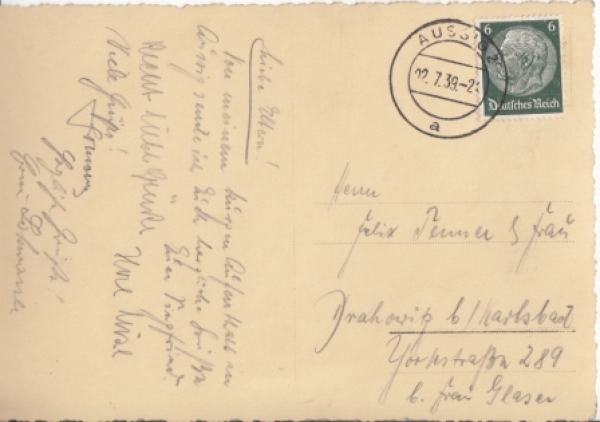 Liebe Eltern!
Von meinem kurzen Aufenthalt in
Aussig sende ich Euch herzliche Grüße
Euer Siegfried.
Recht liebe Grüße
Viele Grüße!
AUSSIG 2
22.7.39.-2
a
6 6
Deutsches Reich
Herrn
Felix Tenner & Frau
Drahowitz b/Karlsbad
Yorkstraße 289
b. Frau Glaser